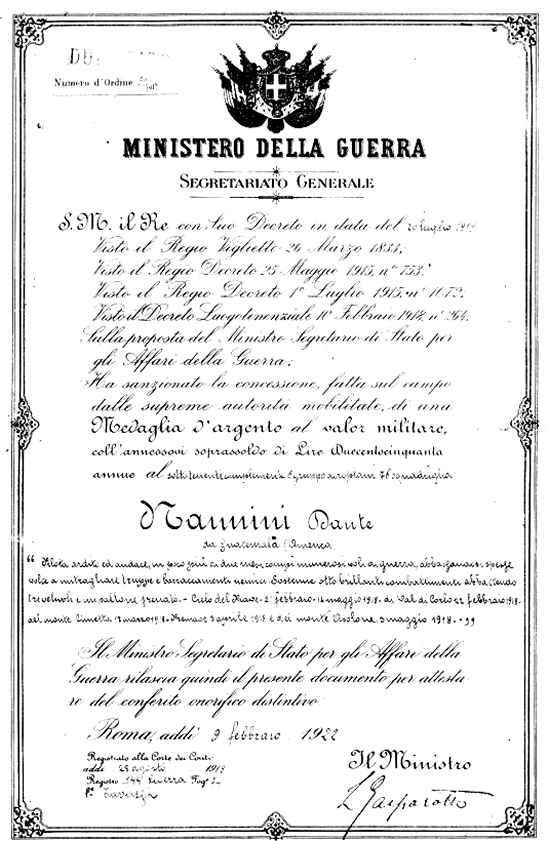 Numero d'Ordine
MINISTERO DELLA GUERRA
SEGRETARIATO GENERALE
S. M. il Re con Suo Decreto in data del 20 luglio 1919
Visto il Regio Viglietto 26 Marzo 1833;
Visto il Regio Decreto 25 Maggio 1915, n° 753;
Visto il Regio Decreto 1° Luglio 1915, n° 1072;
Visto il Decreto Luogotenenziale 10 Febbraio 1918, n° 264;
Sulla proposta del Ministro Segretario di Stato per
gli Affari della Guerra;
Ha sanzionato la concessione, fatta sul campo
dalle supreme autorità mobilitate, di una
Medaglia d'argento al valor militare,
coll'annessovi soprassoldo di Lire Duecentocinquanta
annue al sottotenente complemento 6 gruppo aeroplani 76 squadriglia
Nannini Dante
da Guatemala (America
" Pilota ardito ed audace, in poco più di due mesi compì numerosi voli di guerra, abbassandosi spesso
volte a mitragliare truppe e baraccamenti nemici. Sostenne otto brillanti combattimenti abbattendo
tre velivoli e un pallone frenato. - Cielo del Piave - 2 febbraio - 16 maggio 1918 - di Val di 22 febbraio 1918 -
del monte 1918 - 3 aprile 1918 e del monte Asolone, 3 maggio 1918 - "
Il Ministro Segretario di Stato per gli Affari della
Guerra rilascia quindi il presente documento per attesta
re del conferito onorifico distintivo
Roma, addì 9 febbraio 1922
Registrato alla Corte dei Conti
addì 25 agosto 1919
Registro 144 Guerra Fog°
Il Ministro
L. Gasparotto